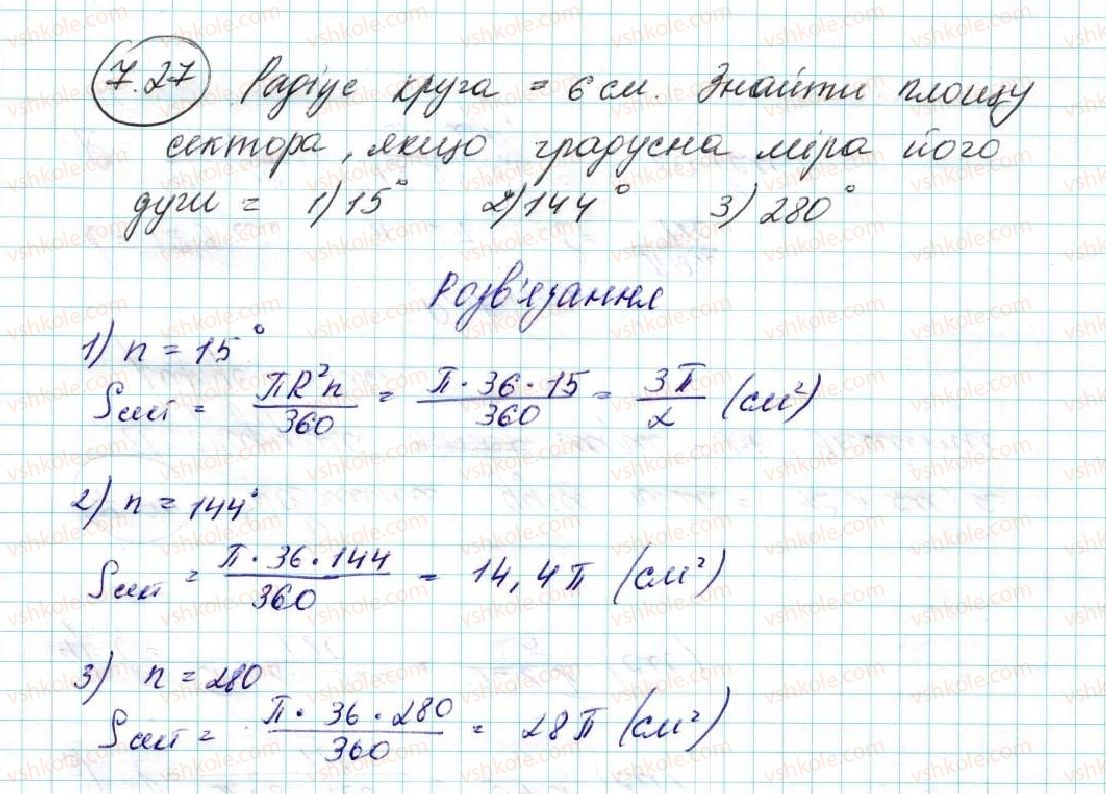 7.27 Радіус круга = 6 см. Знайти площу
сектора, якщо градусна міра його
дуги = 1) 15° 2) 144° 3) 280°
Розв'язання
1) n = 15°
Sсект = πR²n/360 = π·36·15/360 = 3π/2 (см²)
2) n = 144°
Sсект = π·36·144/360 = 14,4π (см²)
3) n = 280
Sсект = π·36·280/360 = 28π (см²)
vshkole.com